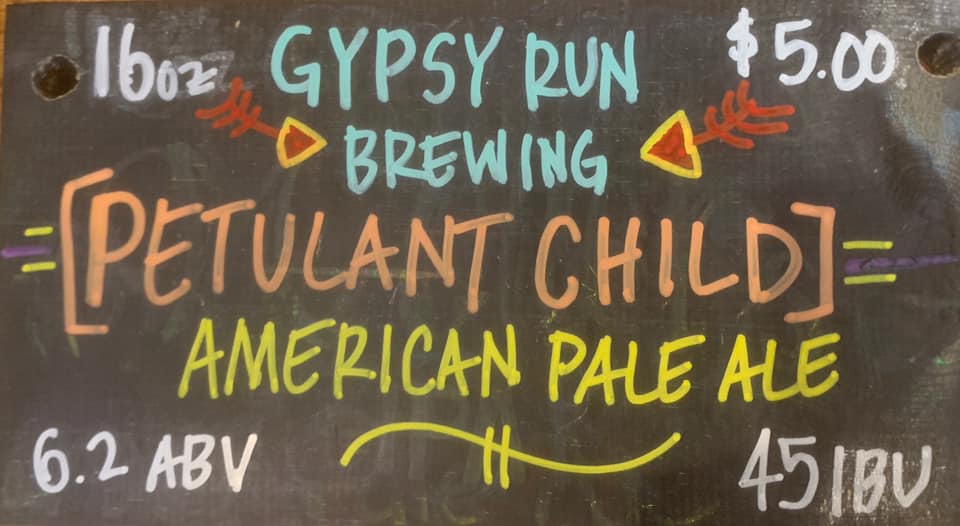 16oz GYPSY RUN $5.00
BREWING
[PETULANT CHILD]
AMERICAN PALE ALE
6.2 ABV 45 IBU